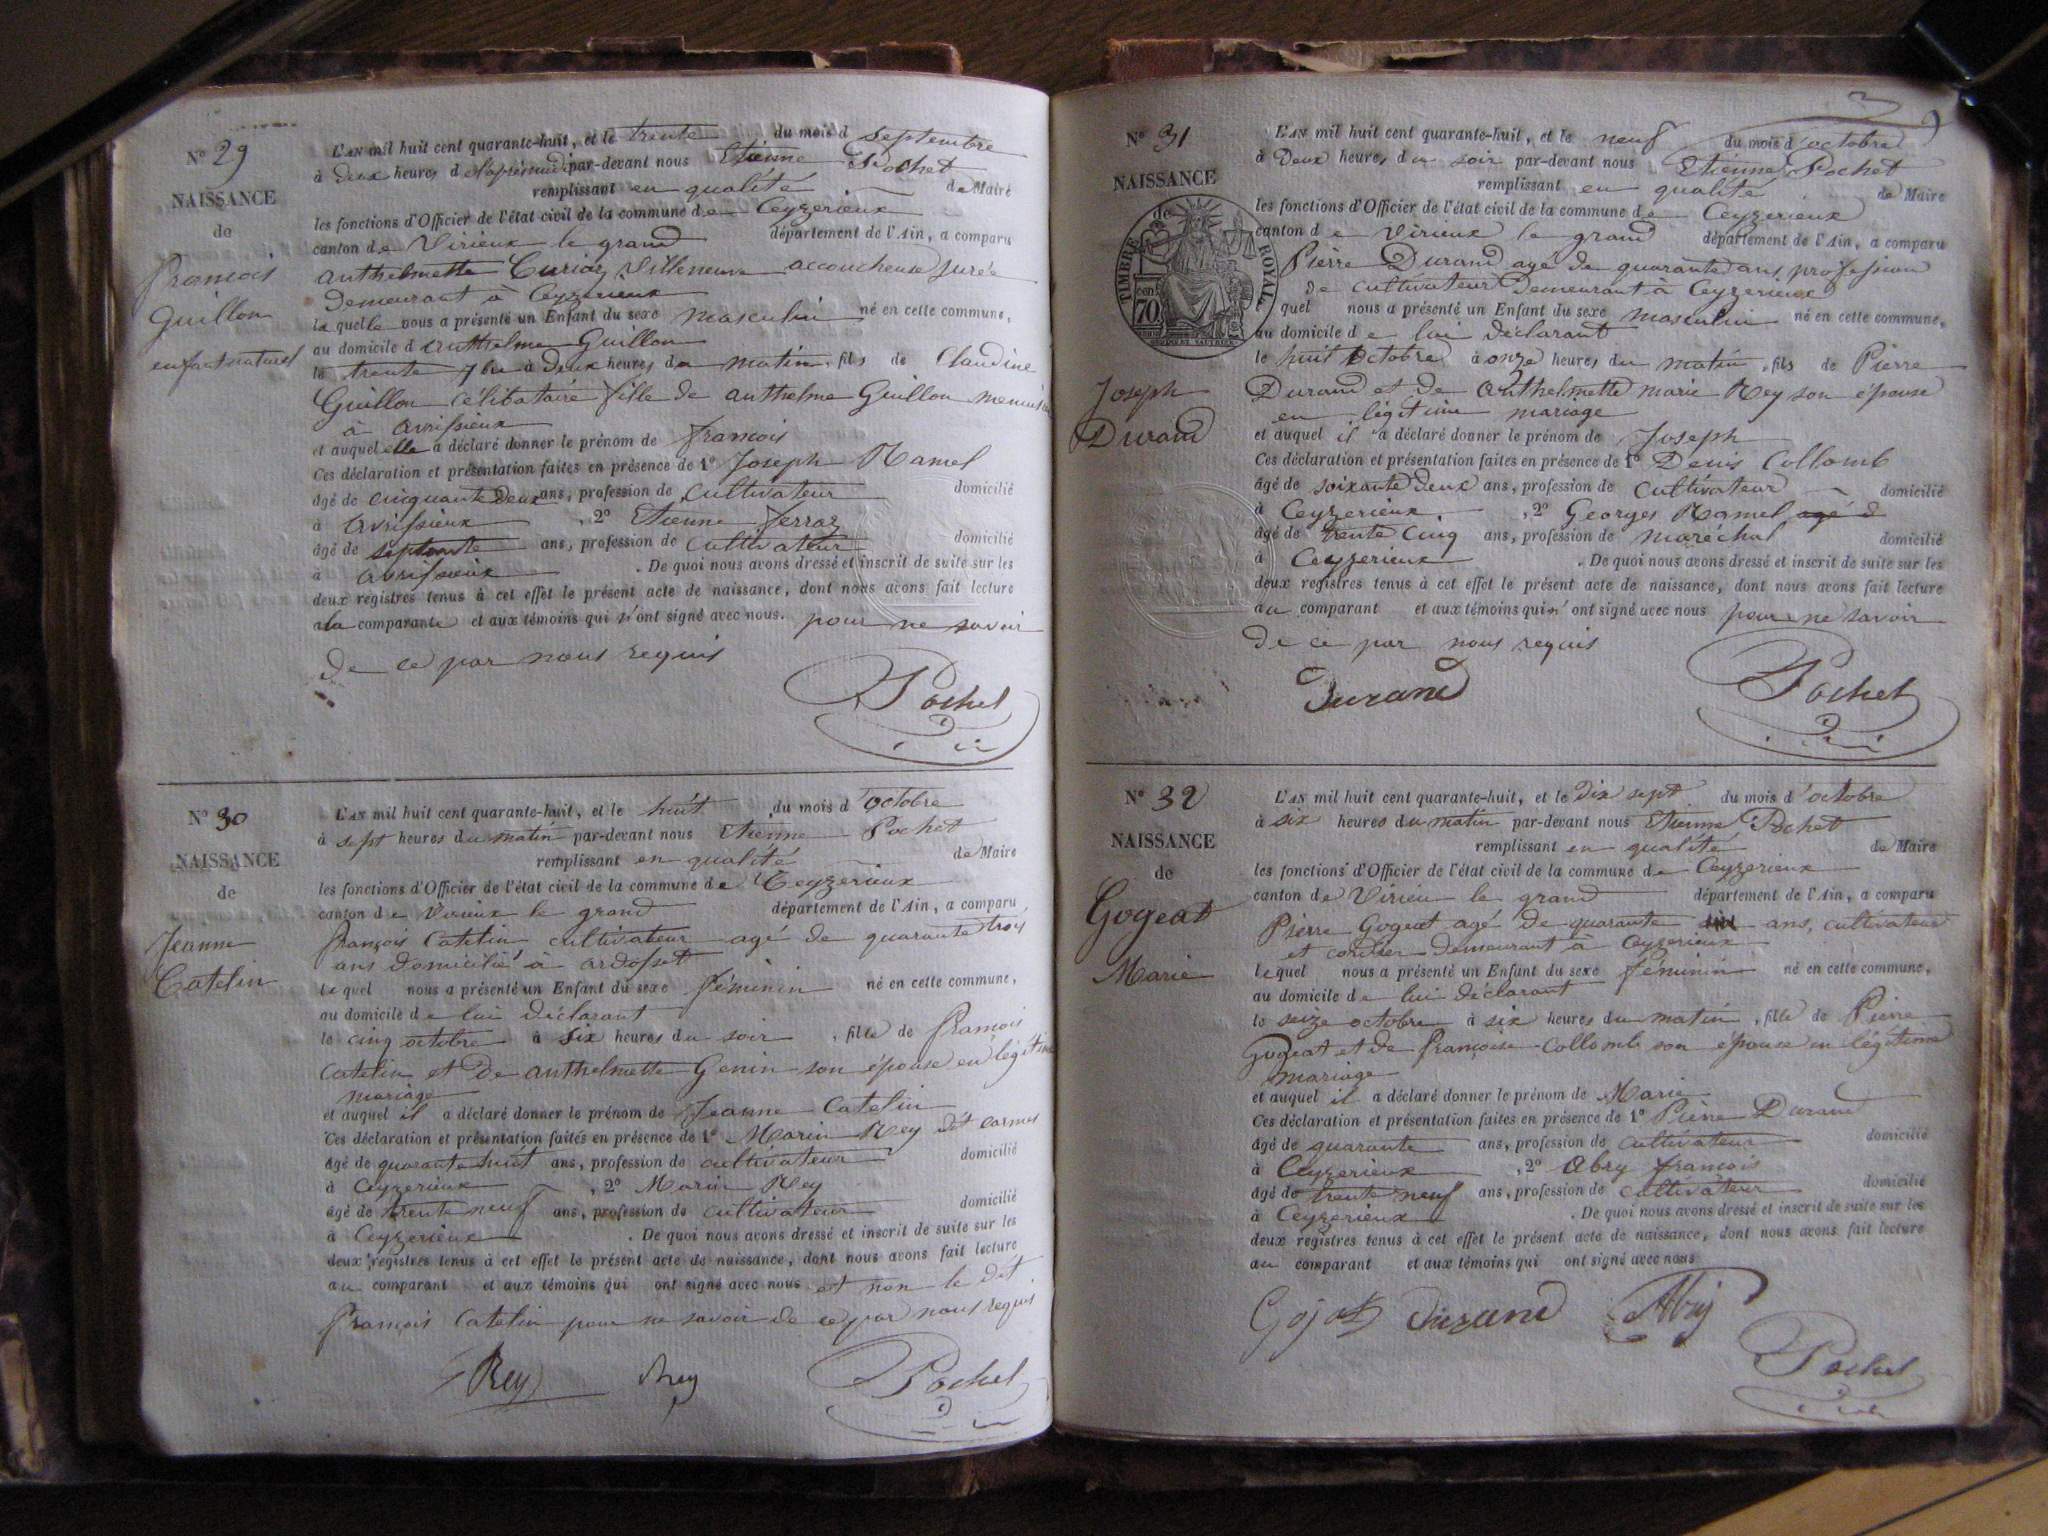 N° 29
NAISSANCE
de
françois
Guillon
enfant naturel
L'AN mil huit cent quarante-huit, et le trente du mois d septembre
à deux heures d l'aprèsmidi par-devant nous Etienne Pochet
remplissant en qualité de Maire
les fonctions d'Officier de l'état civil de la commune de Ceyzerieux
canton de Virieux le grand département de l'Ain, a comparu
anthelmette Curiaz Villeneuve accoucheuse jurée
demeurant à Ceyzerieux
laquelle nous a présenté un Enfant du sexe masculin né en cette commune,
au domicile d anthelme Guillon
le trente 7bre à deux heures du matin, fils de Claudine
Guillon célibataire fille de anthelme Guillon menuisier
à avrissieux
et auquel elle a déclaré donner le prénom de françois
Ces déclaration et présentation faites en présence de 1° Joseph Ramel
âgé de cinquante deux ans, profession de cultivateur domicilié
à avrissieux, 2° Etienne ferraz
âgé de septante ans, profession de cultivateur domicilié
à avrissieux. De quoi nous avons dressé et inscrit de suite sur les
deux registres tenus à cet effet le présent acte de naissance, dont nous avons fait lecture
a la comparante et aux témoins qui n'ont signé avec nous. pour ne savoir
de ce par nous requis
Pochet
N° 30
NAISSANCE
de
Jeanne
Catelin
L'AN mil huit cent quarante-huit, et le huit du mois d'octobre
à sept heures du matin par-devant nous Etienne Pochet
remplissant en qualité de Maire
les fonctions d'Officier de l'état civil de la commune de Ceyzerieux
canton de Virieux le grand département de l'Ain, a comparu
françois Catelin cultivateur agé de quarante trois
ans domicilié à ardosset
lequel nous a présenté un Enfant du sexe féminin né en cette commune,
au domicile de lui déclarant
le cinq octobre à six heures du soir, fille de françois
Catelin et de anthelmette Genin son épouse en légitime
mariage
et auquel il a déclaré donner le prénom de Jeanne Catelin
Ces déclaration et présentation faites en présence de 1° Marin Rey dit carmet
âgé de quarante huit ans, profession de cultivateur domicilié
à Ceyzerieux, 2° Marin Rey
âgé de trente neuf ans, profession de cultivateur domicilié
à Ceyzerieux. De quoi nous avons dressé et inscrit de suite sur les
deux registres tenus à cet effet le présent acte de naissance, dont nous avons fait lecture
au comparant et aux témoins qui ont signé avec nous et non le dit
françois Catelin pour ne savoir de ce par nous requis
Rey Rey Pochet
N° 31
NAISSANCE
de
TIMBRE ROYAL
70
Joseph
Durand
L'AN mil huit cent quarante-huit, et le neuf du mois d'octobre
à deux heures du soir par-devant nous Etienne Pochet
remplissant en qualité de Maire
les fonctions d'Officier de l'état civil de la commune de Ceyzerieux
canton de Virieux le grand département de l'Ain, a comparu
Pierre Durand agé de quarante ans, profession
de cultivateur demeurant à Ceyzerieux
quel nous a présenté un Enfant du sexe masculin né en cette commune,
au domicile de lui déclarant
le huit octobre à onze heures du matin, fils de Pierre
Durand et de anthelmette marie Rey son épouse
en légitime mariage
et auquel il a déclaré donner le prénom de Joseph
Ces déclaration et présentation faites en présence de 1° Denis Collomb
âgé de soixante deux ans, profession de cultivateur domicilié
à Ceyzerieux, 2° Georges Ramel agé d
âgé de trente cinq ans, profession de maréchal domicilié
à Ceyzerieux. De quoi nous avons dressé et inscrit de suite sur les
deux registres tenus à cet effet le présent acte de naissance, dont nous avons fait lecture
au comparant et aux témoins qui n'ont signé avec nous pour ne savoir
de ce par nous requis
Durand Pochet
N° 32
NAISSANCE
de
Gogeat
Marie
L'AN mil huit cent quarante-huit, et le dix sept du mois d'octobre
à six heures du matin par-devant nous Etienne Pochet
remplissant en qualité de Maire
les fonctions d'Officier de l'état civil de la commune de Ceyzerieux
canton de Virieu le grand département de l'Ain, a comparu
Pierre Gogeat agé de quarante ans, cultivateur
et cordier demeurant à Ceyzerieux
lequel nous a présenté un Enfant du sexe féminin né en cette commune,
au domicile de lui déclarant
le seize octobre à six heures du matin, fille de Pierre
Gogeat et de françoise Collomb son épouse en légitime
mariage
et auquel il a déclaré donner le prénom de Marie
Ces déclaration et présentation faites en présence de 1° Pierre Durand
âgé de quarante ans, profession de cultivateur domicilié
à Ceyzerieux, 2° Abry françois
âgé de trente neuf ans, profession de cultivateur domicilié
à Ceyzerieux. De quoi nous avons dressé et inscrit de suite sur les
deux registres tenus à cet effet le présent acte de naissance, dont nous avons fait lecture
au comparant et aux témoins qui ont signé avec nous
Gojat Durand Abry
Pochet